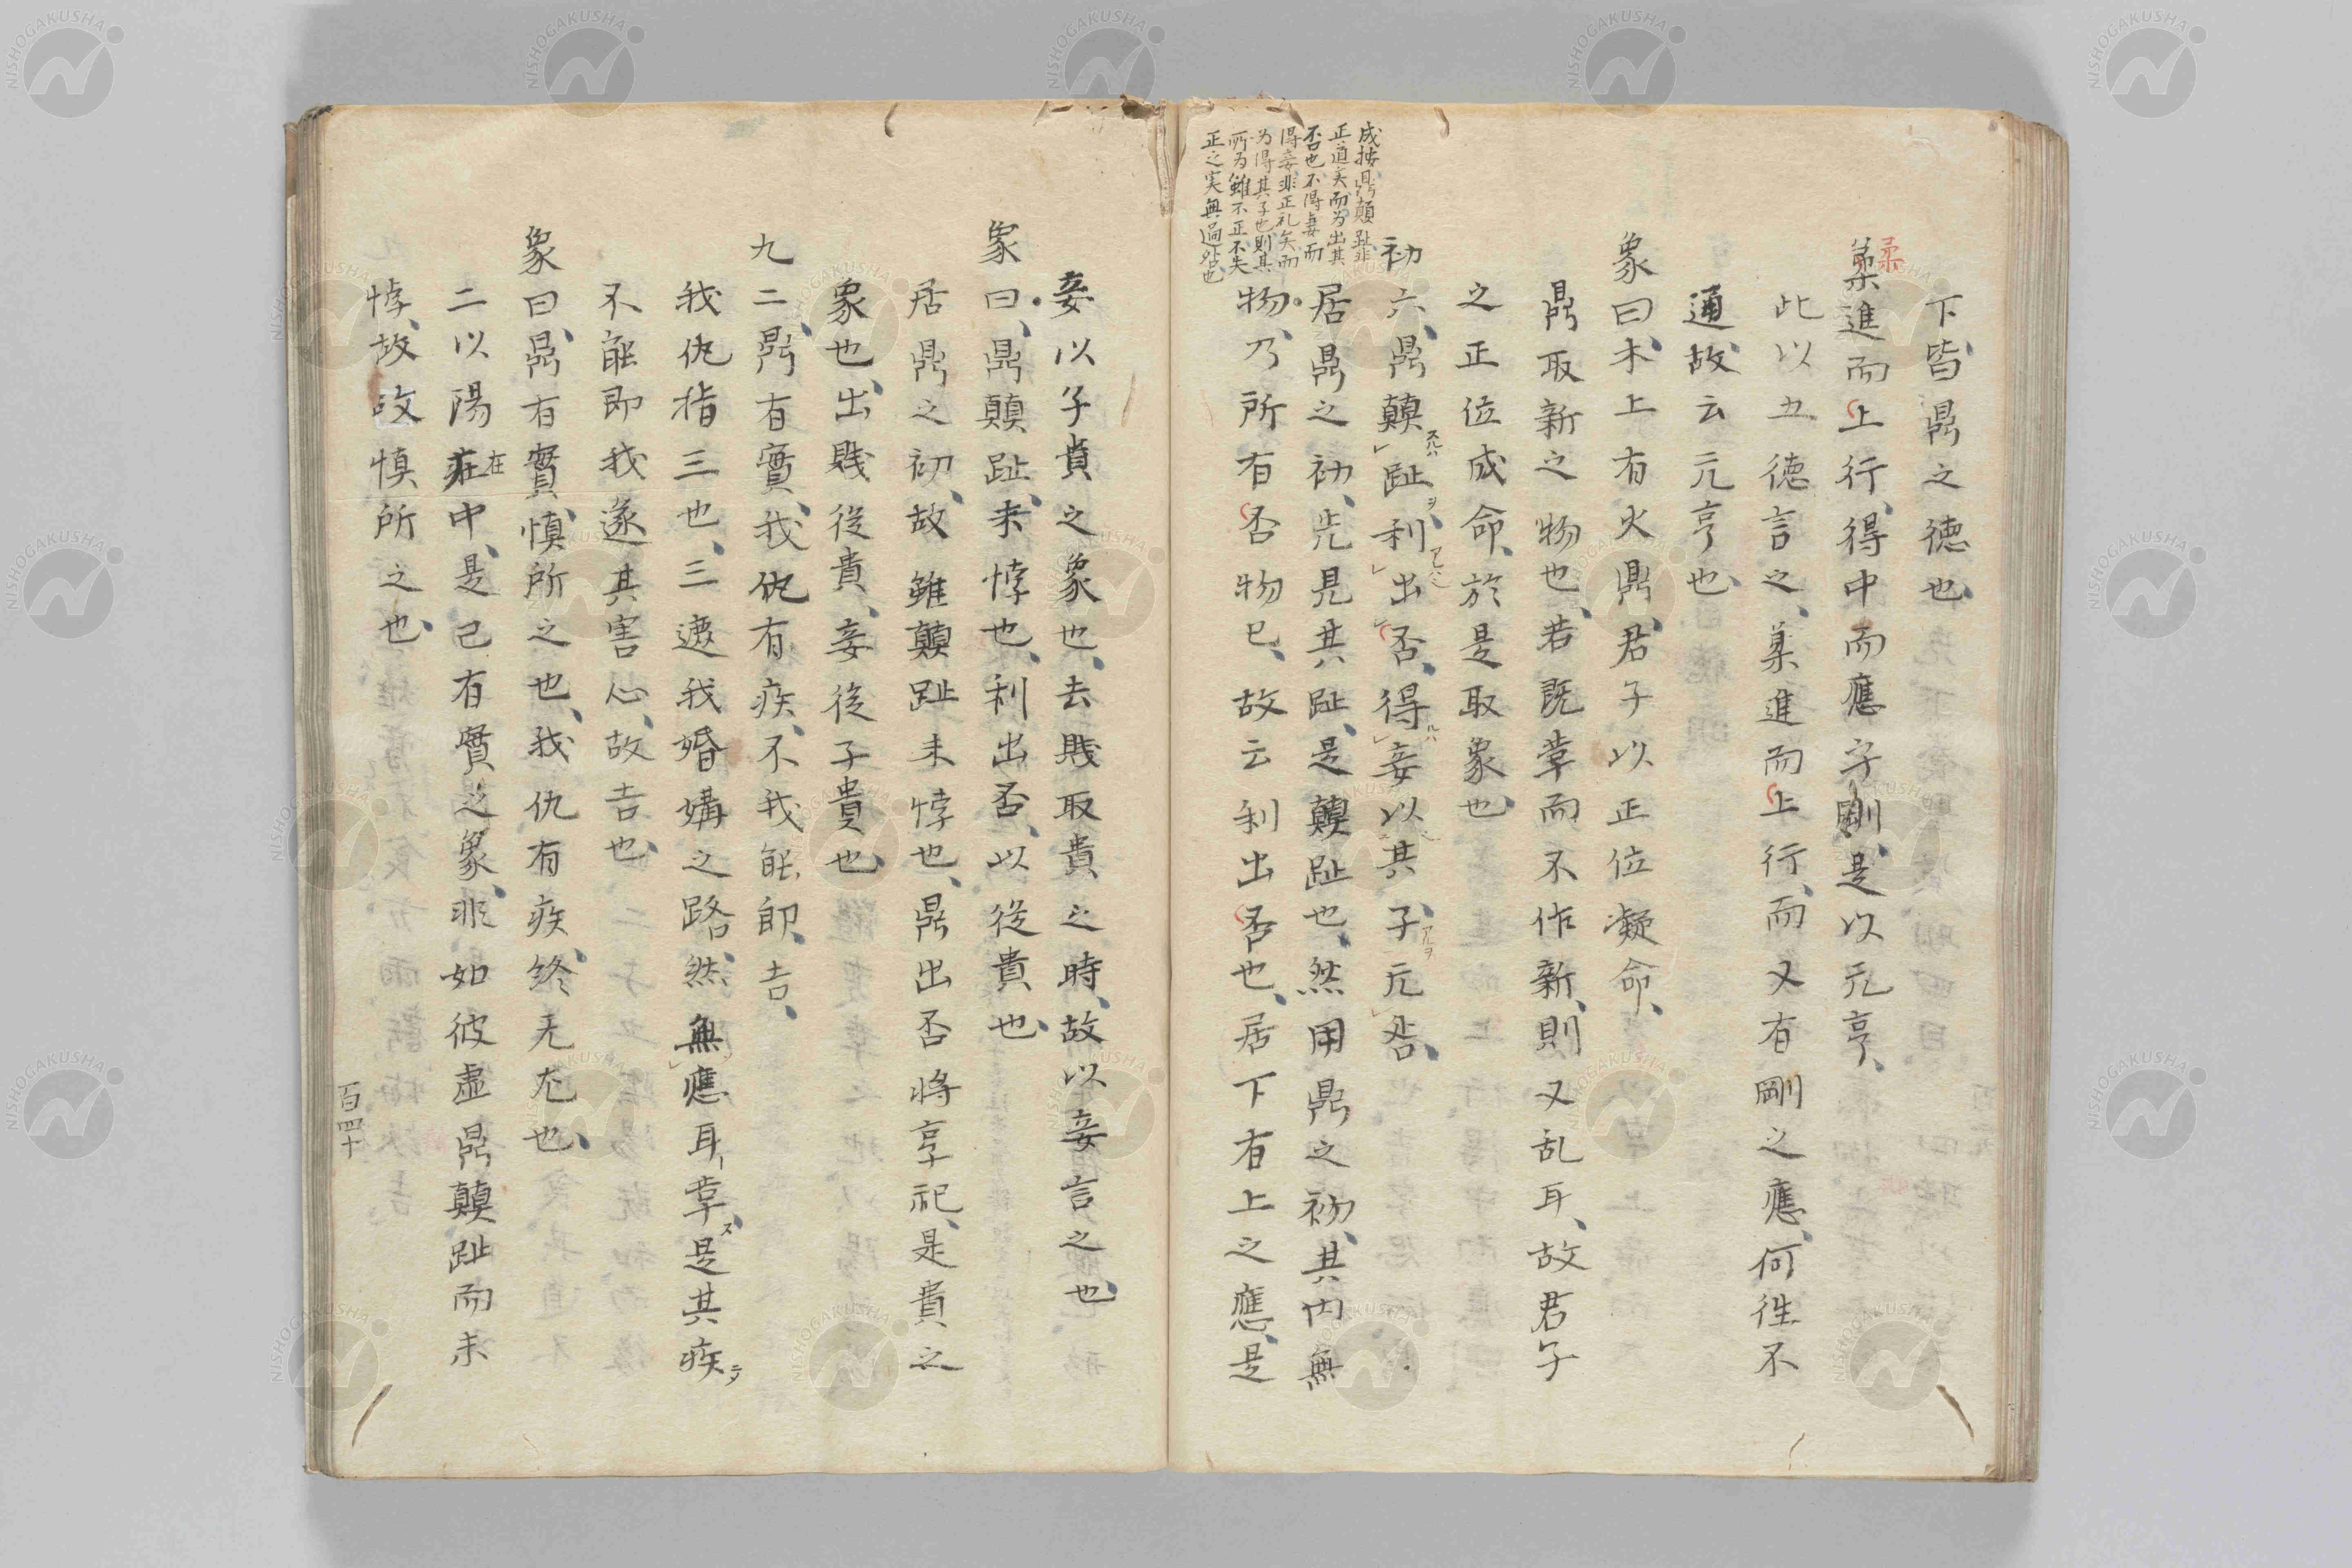 下皆鼎之德也
柔
葇進而上行、得中而應乎剛、是以元亨、
此以五德言之、葇進而上行、而又有剛之應、何往不
通、故云元亨也
象曰、木上有火鼎、君子以正位凝命、
鼎取新之物也、若既革而不作新、則又乱耳、故君子
之正位成命、於是取象也
初六、鼎顛趾、利出否、得妾以其子、元咎、
居鼎之初、先見其趾、是顛趾也、然用鼎之初、其内無
物、乃所有否物已、故云利出否也、居下有上之應、是
成按鼎顛趾非
正道矣而为出其
否也不得妻而
得妾非正礼矣而
为得其子也則其
所为雖不正不失
正之実無過咎也
妾以子貴之象也、去賎取貴之時、故以妾言之也
象曰、鼎顛趾、未悖也、利出否、以從貴也
居鼎之初、故雖顛趾未悖也、鼎出否將享祀、是貴之
象也、出賎從貴、妾從子貴也
九二、鼎有實、我仇有疾、不我能即、吉、
我仇指三也、三遮我婚媾之路、然無應耳革、是其疾
不能即我遂其害心、故吉也
象曰、鼎有實、慎所之也、我仇有疾、終无尤也
二以陽在中、是己有實之象、非如彼虛鼎顛趾而未
悖、故攻慎所之也
百四十
NISHOGAKUSHA